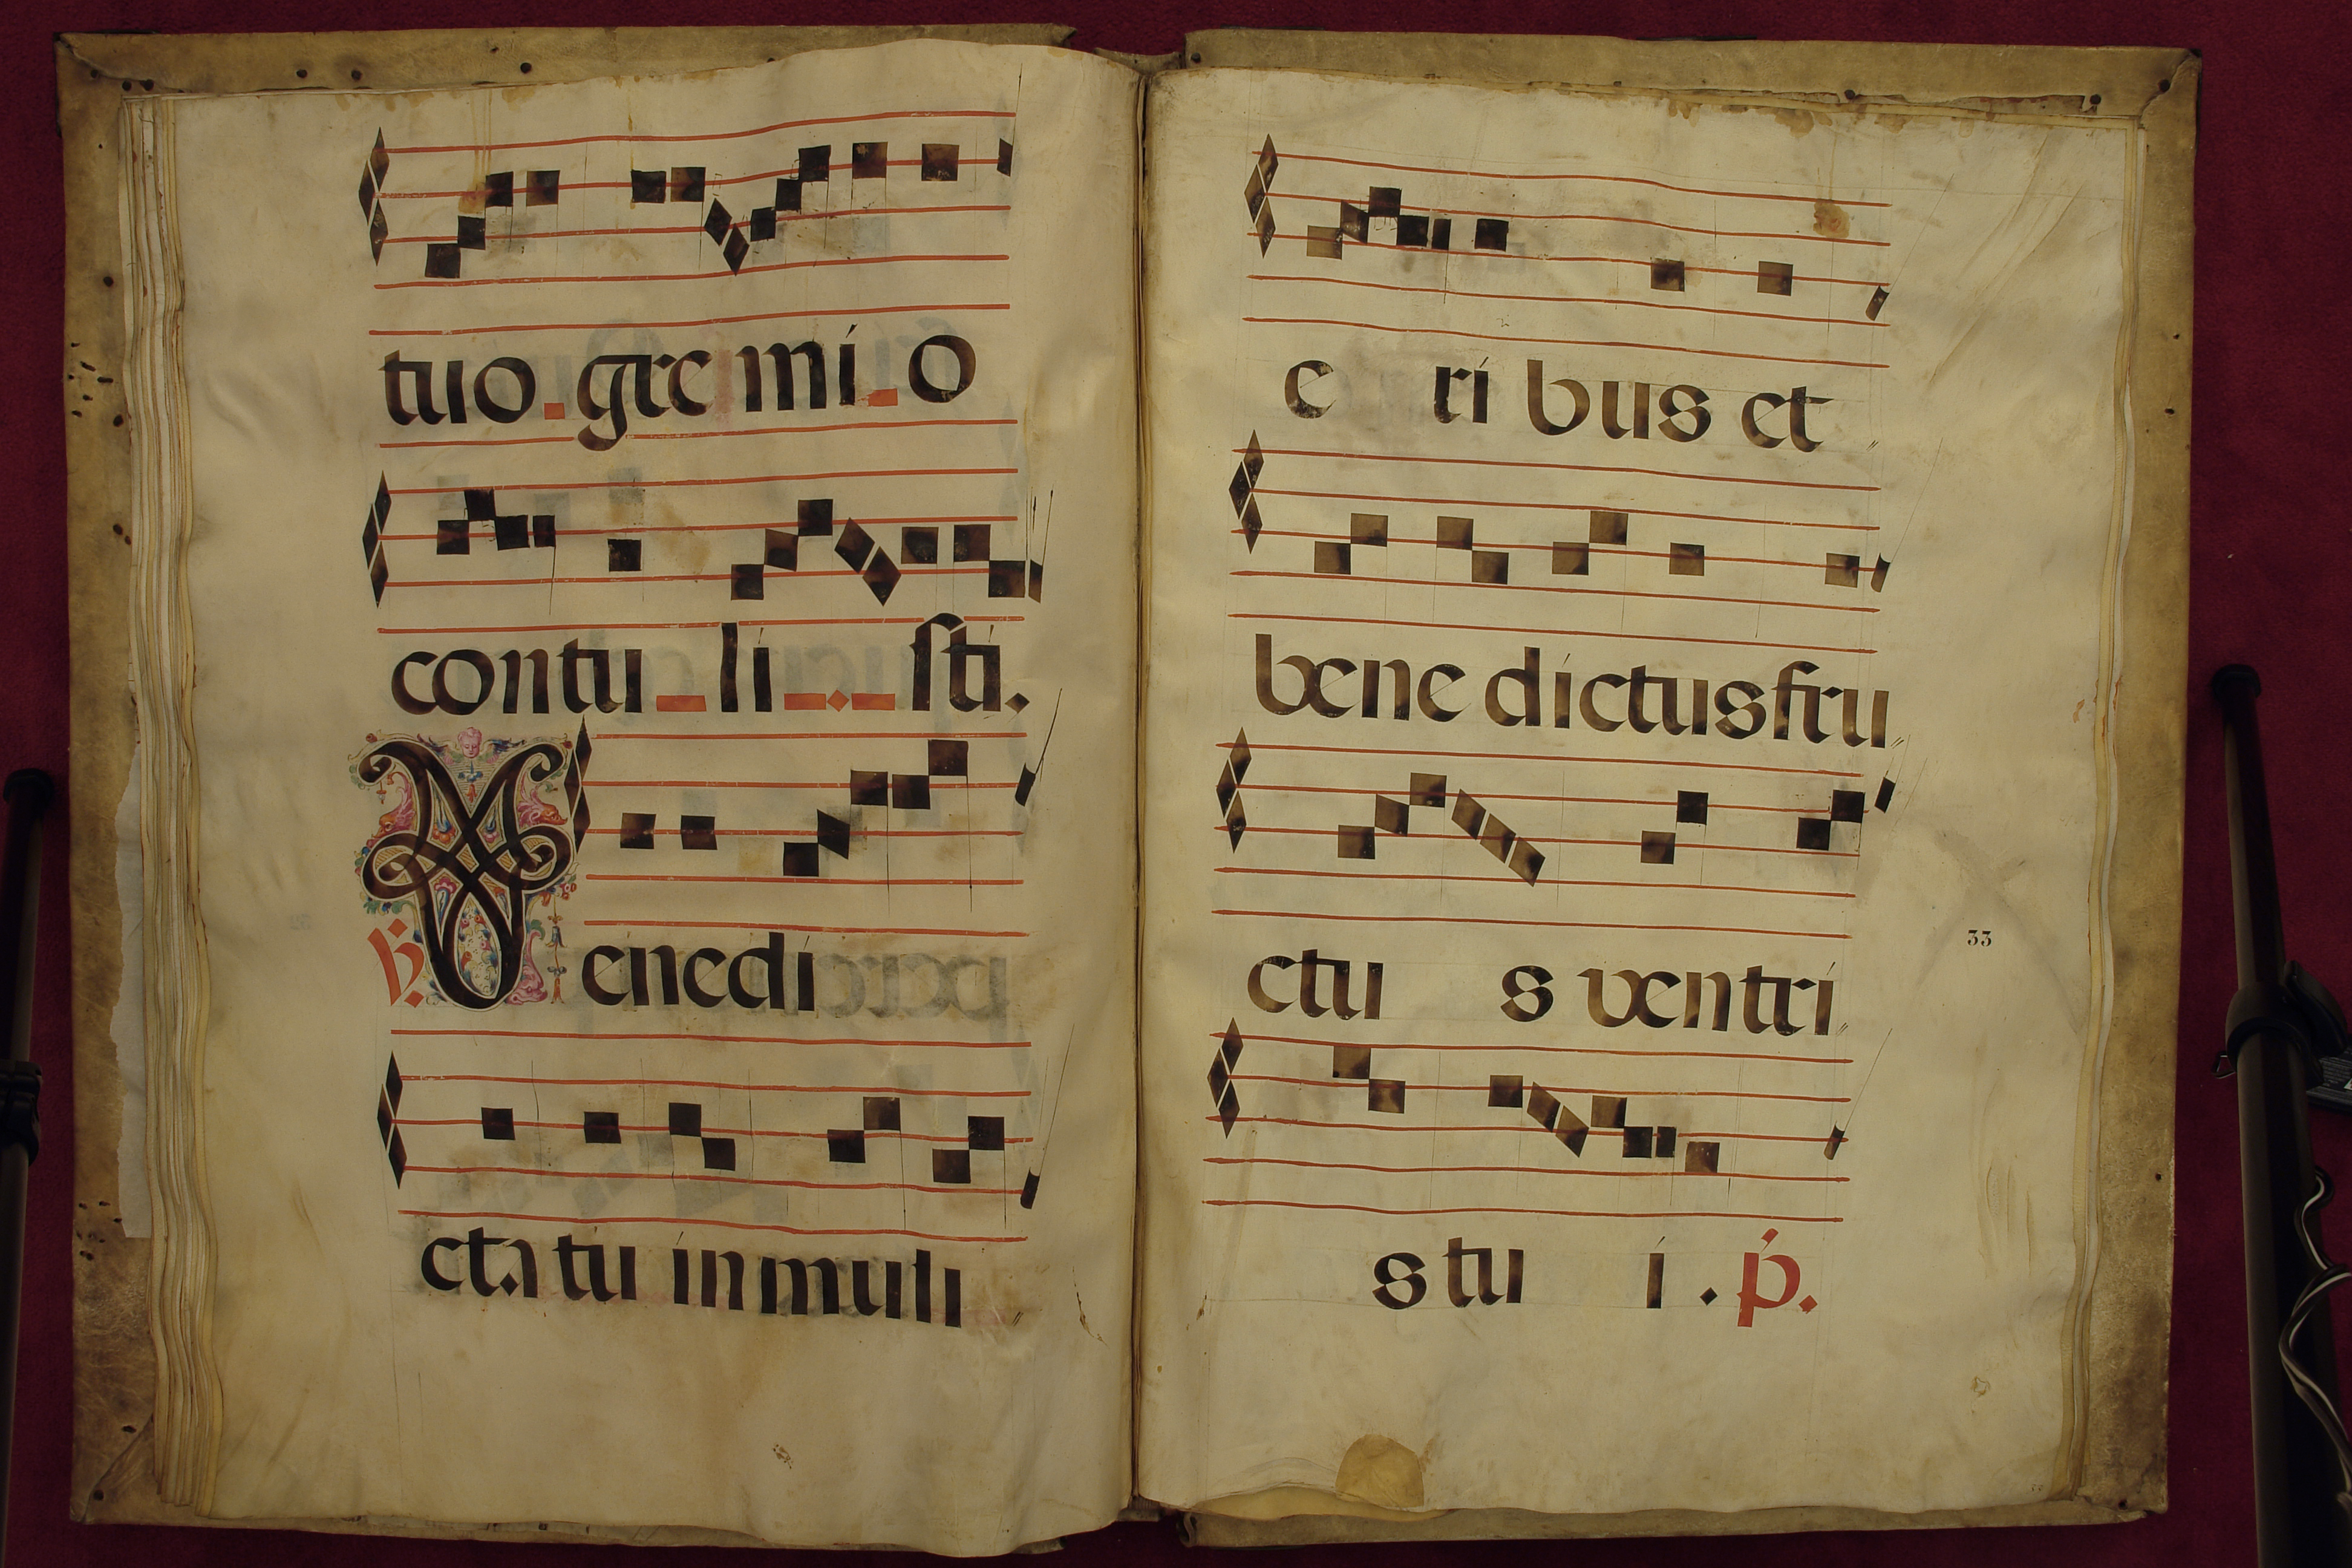 tuo gremi o
contu li sti.
℣. Benedi
cta tu in muli
e ri bus et
bene dictus fru
ctu s ventri
33
s tu i . p.